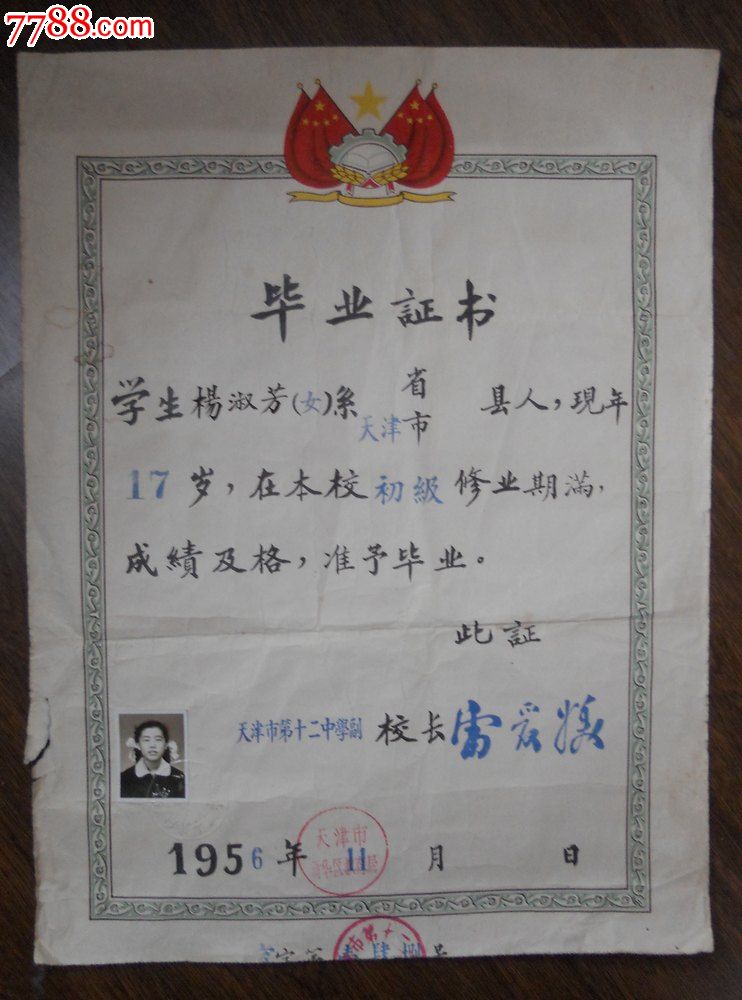 7788.com
毕业証书
学生楊淑芳(女)系天津省市 县人,現年
17岁,在本校初級修业期滿,
成績及格,准予毕业。
此証
天津市第十二中學副校长雷爱媛
1956年11月 日
天津市
市第十二
字第 肆捌号